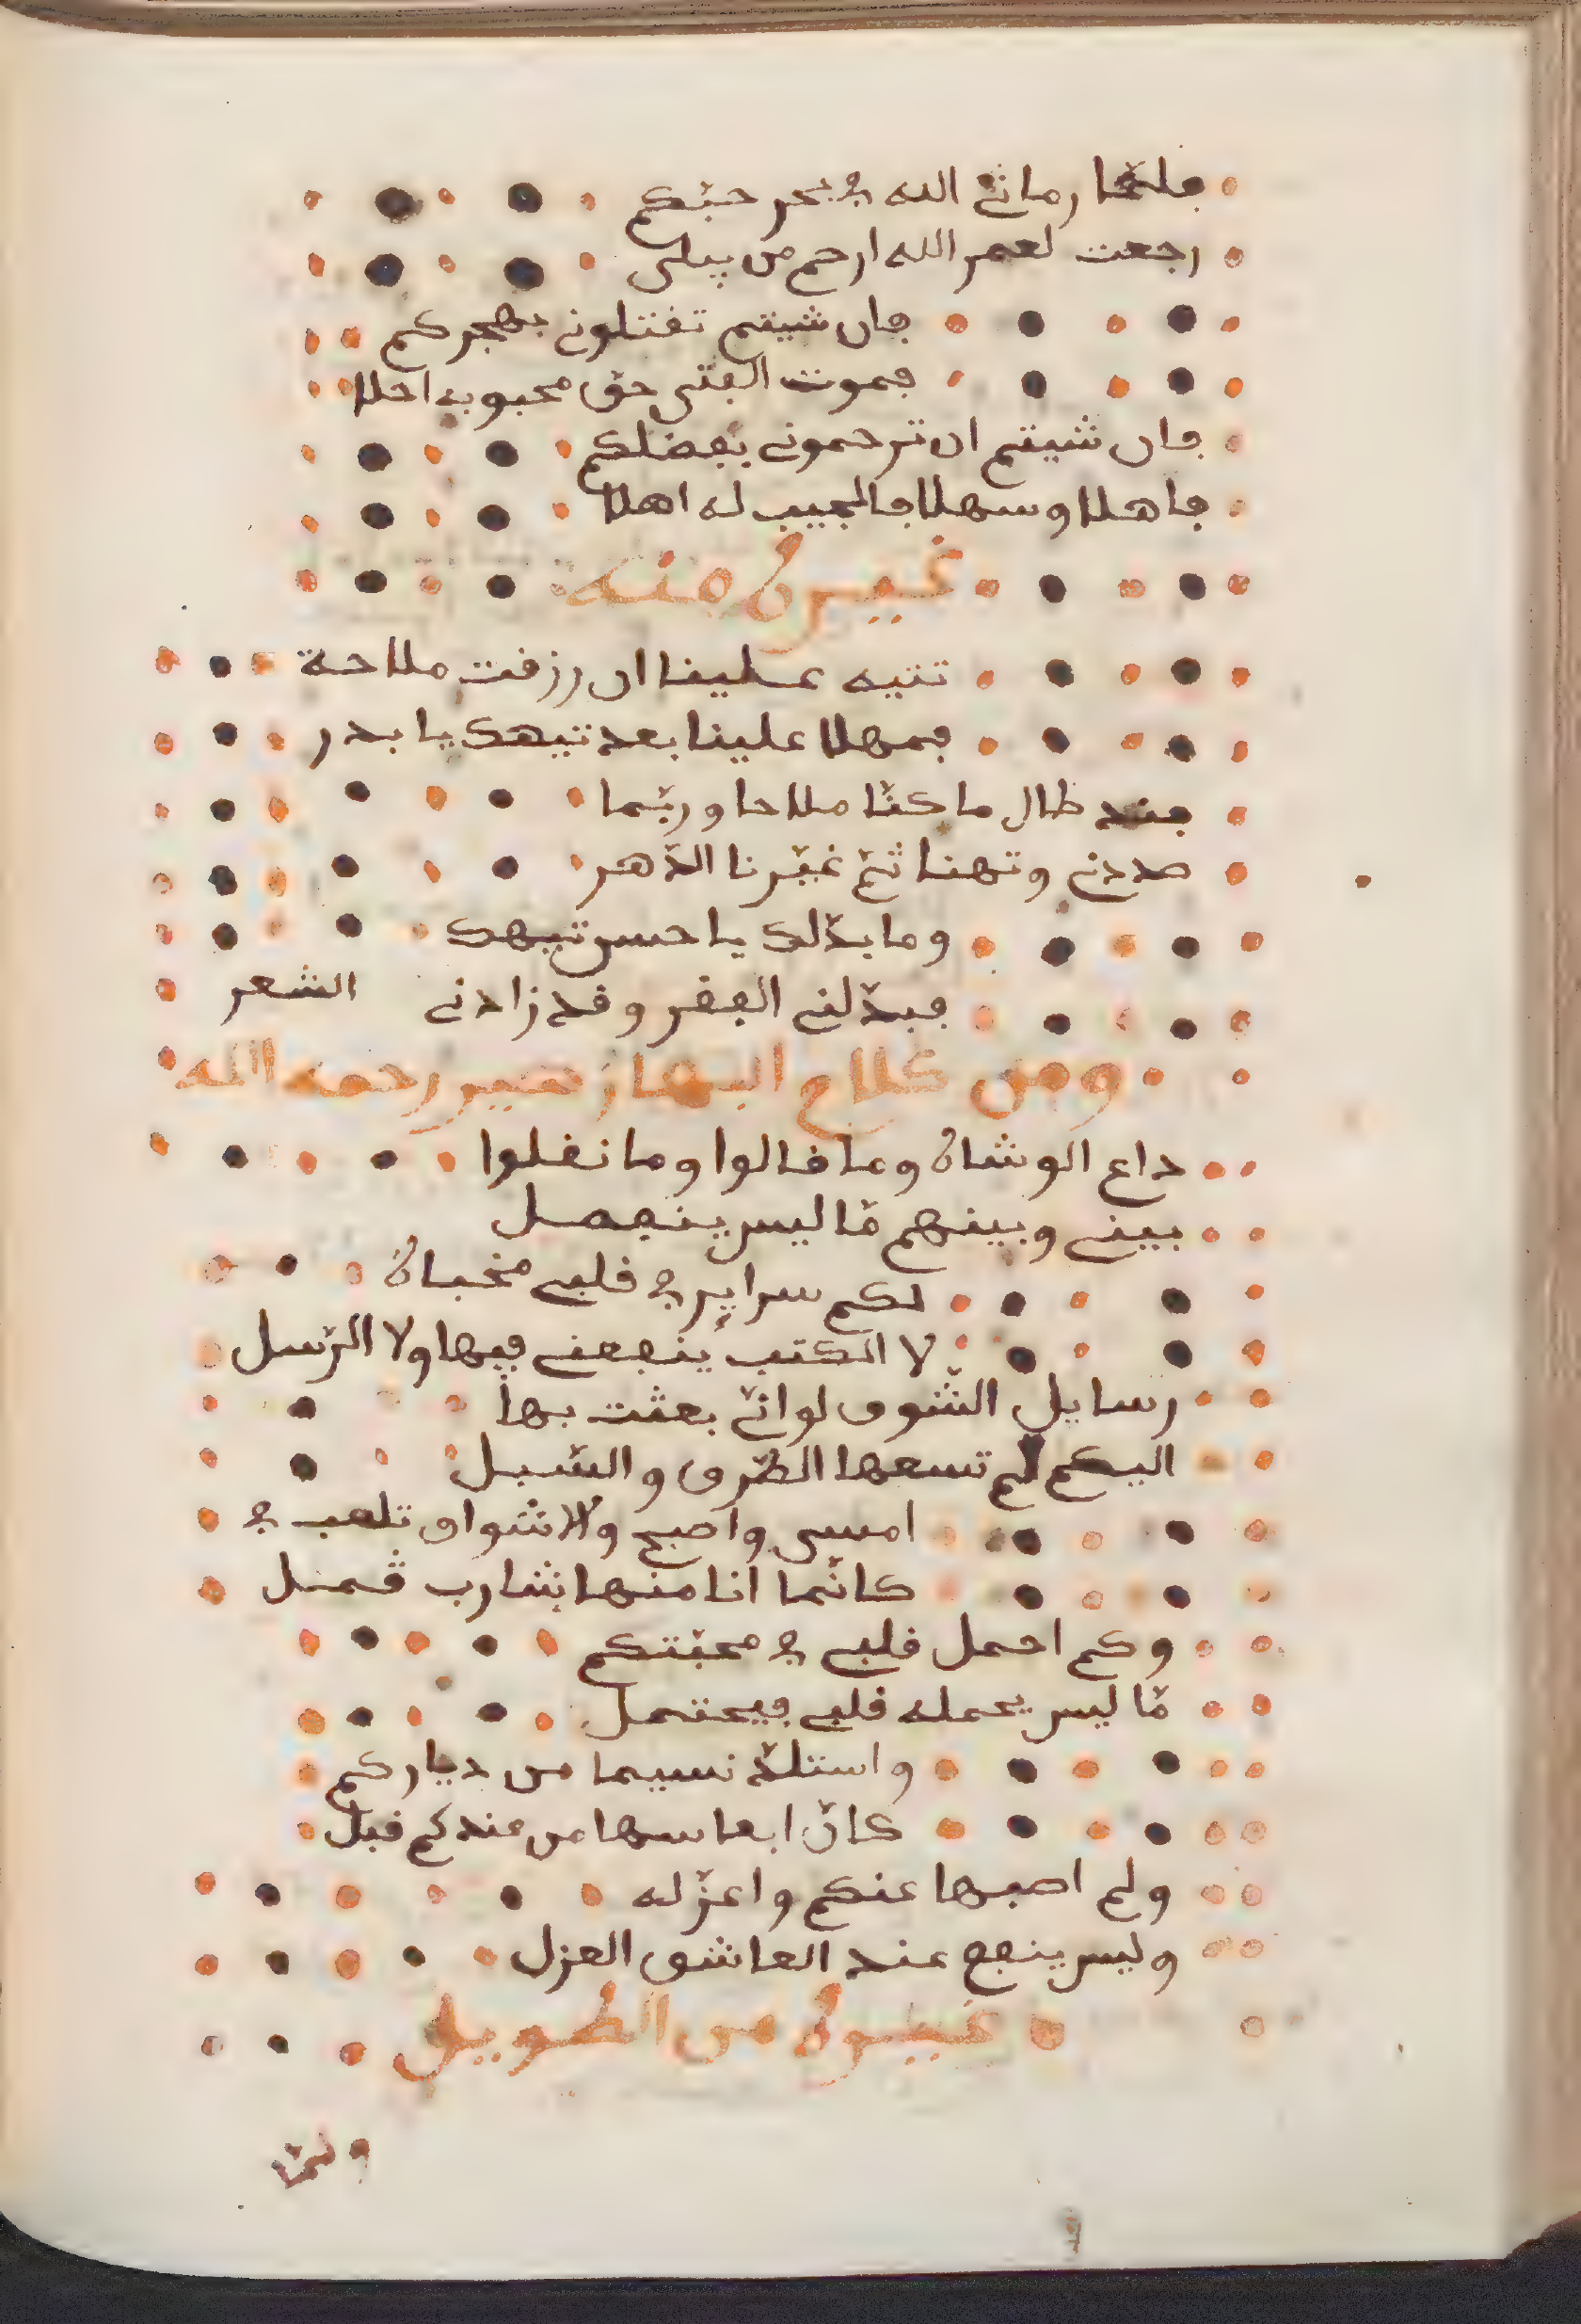 فلمّا رمانى الله فى بحر حبّكم
رجعت لعمر الله ارحم من يبلى
فان شيتم تقتلونى بهجركم
فموت الفتى حق محبوبه احلا
فان شيتم ان ترحمونى بفضلكم
فاهلا وسهلا فالمجيب له اهلا
غيره منه
تتيه علينا ان رزقت ملاحة
فمهلا علينا بعد تيهك يا بدر
فقد طال ما كنّا ملاحا وربّما
صددنى وتهنا ثمّ غيّرنا الدّهر
وما بدّلك يا حسن تيهك
فبدّلنى الفقر وقد زادنى الشعر
ومن كلام البها زهير رحمه الله
داع الوشاة وما قالوا وما نقلوا
بينى وبينهم مّا ليس ينفصل
لكم سراير فى قلبى مخباة
لا الكتب ينفعنى فيها ولا الرّسل
رسايل الشّوق لو انّى بعثت بها
اليكم لم تسعها الطّرق والسّبل
امسى واصبح والاشواق تلعب فى
كانّما انا منها شارب ثمل
وكم احمل قلبى فى محبّتكم
مّا ليس يحمله قلب فيحتمل
واستلذّ نسيما من دياركم
كانّ انفاسها من عندكم قبل
ولم اصبها عنكم واعزّ له
وليس ينفع عند العاشق العزل
غيره من الطويل
ولمّا